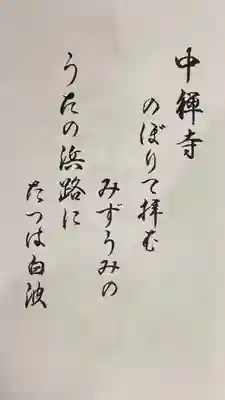 中禅寺
のぼりて拝む
みずうみの
うたの浜路に
たつは白波